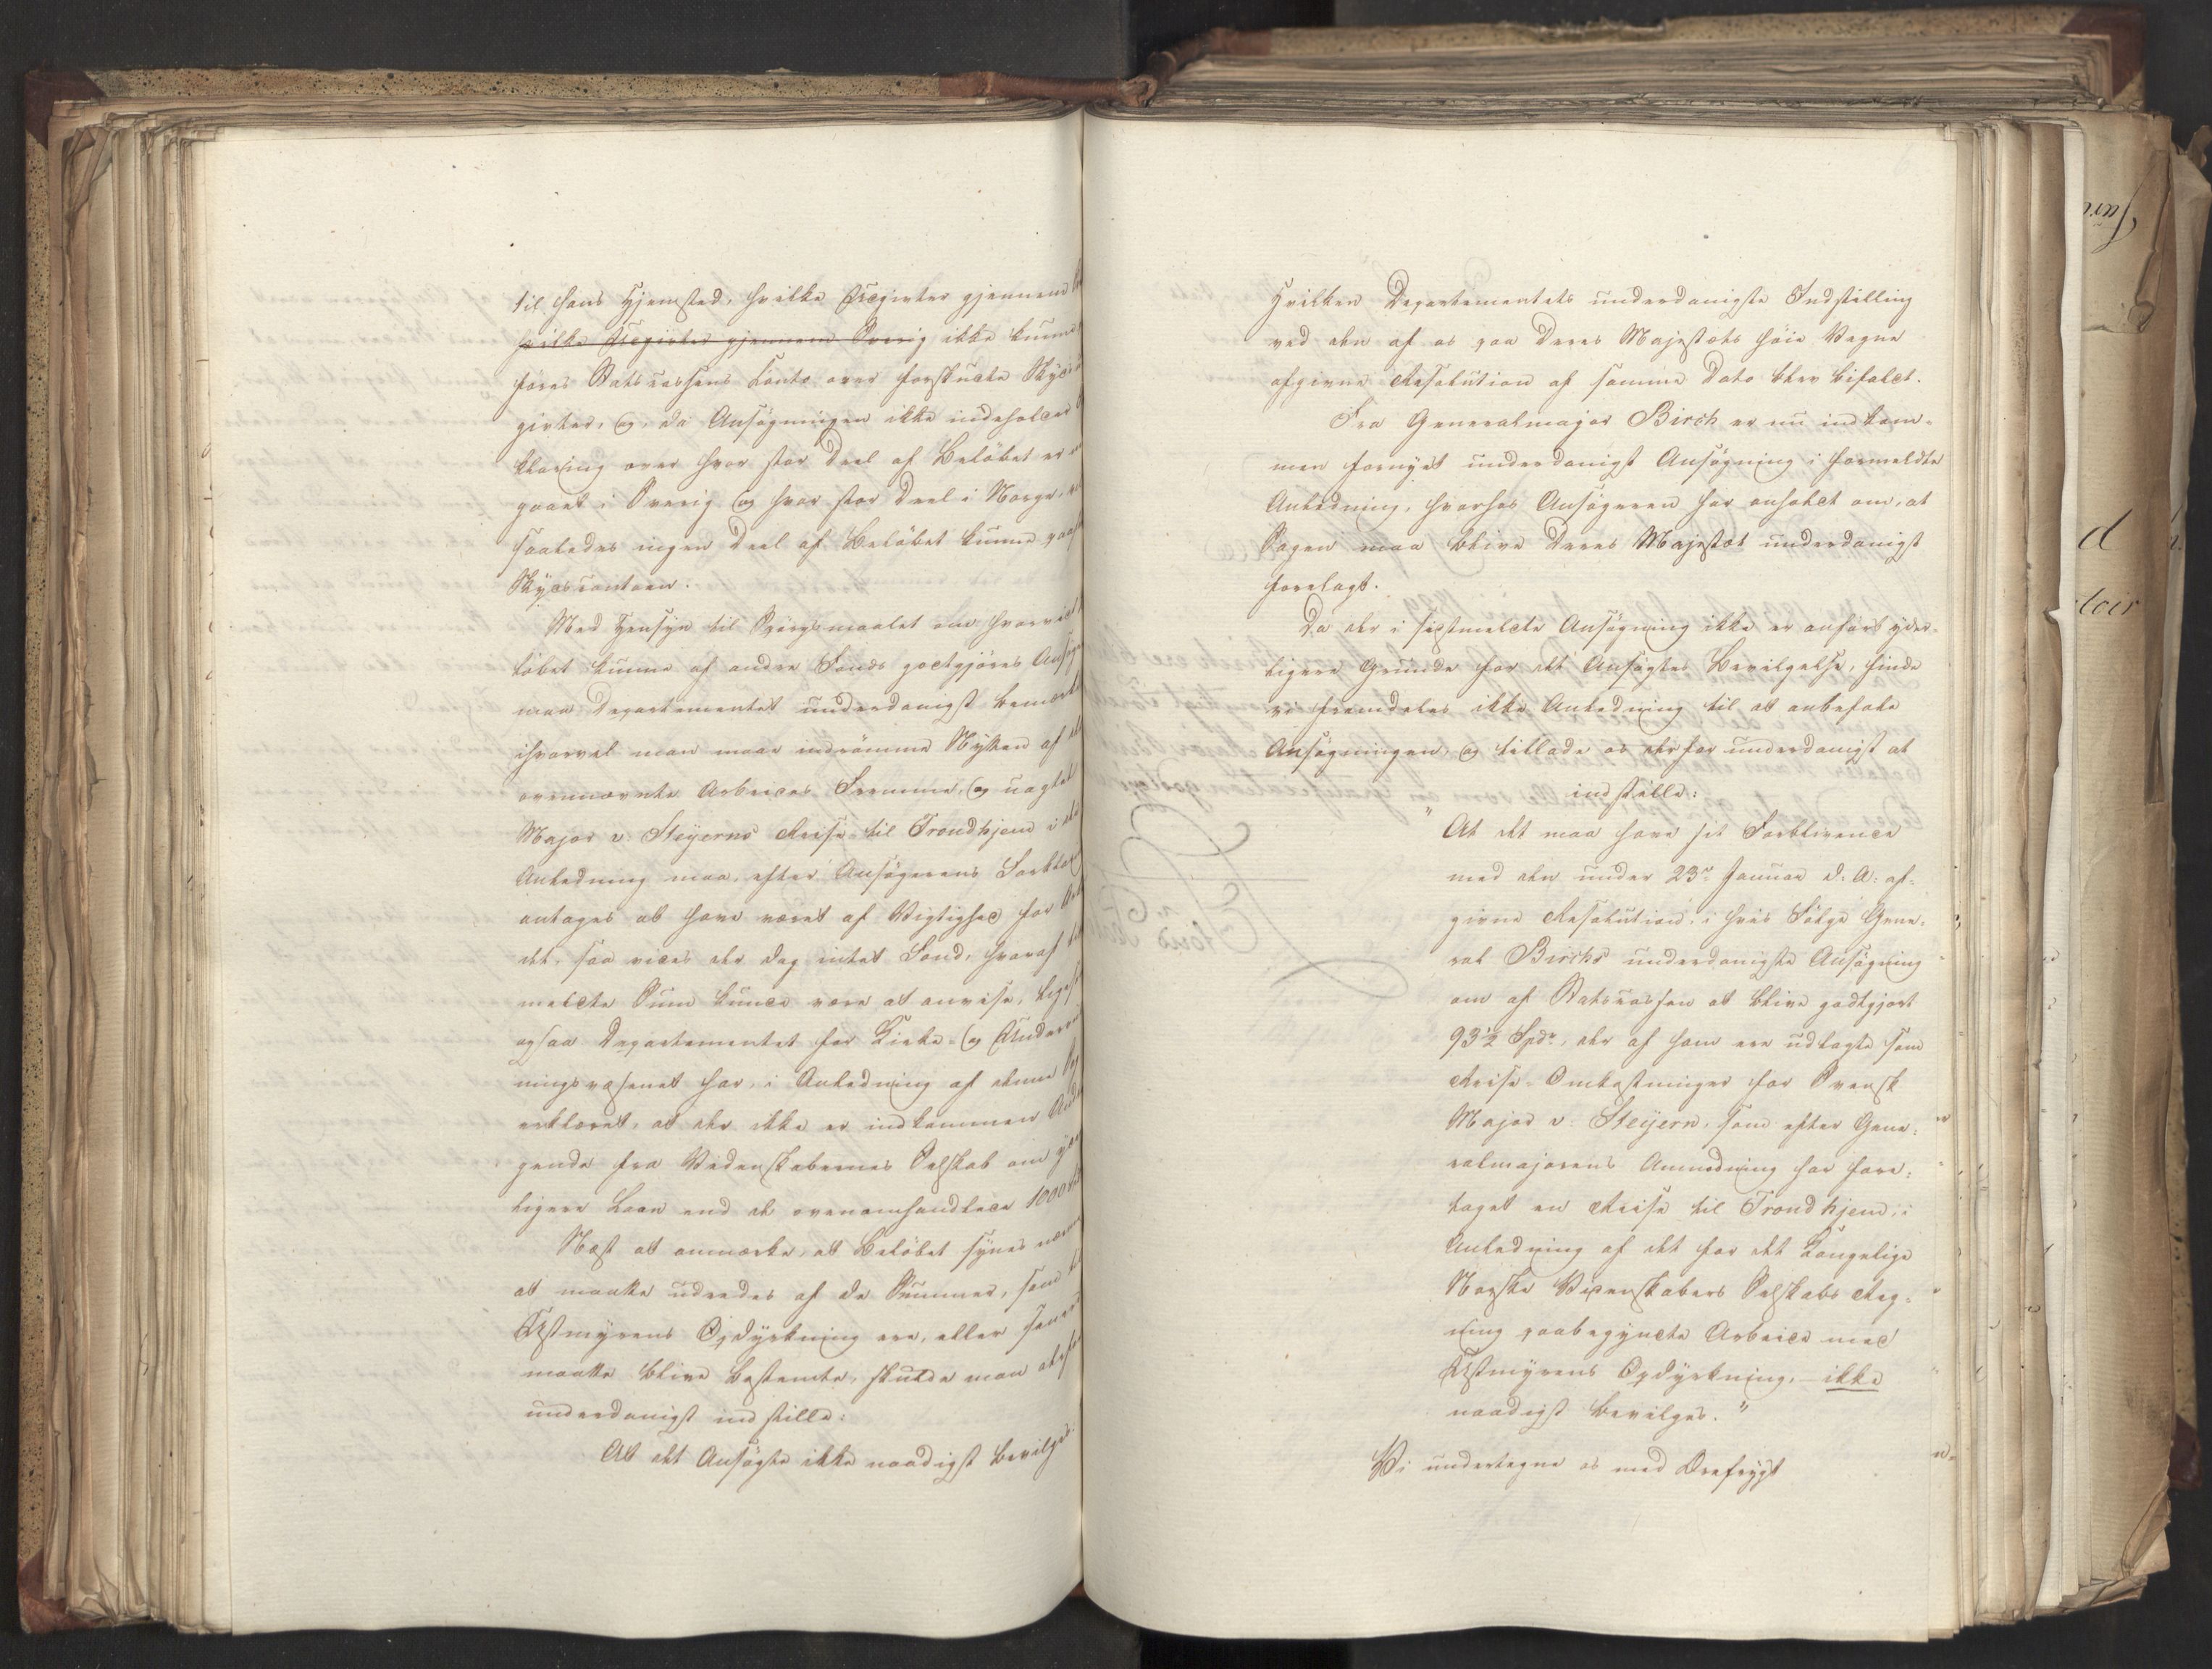 til hans Hjemsted, hvilke Udgivter gjennem
hvilke Udgivter gjennem Sverig ikke kunne
føres Statscassens Conto over forskudte Skyds
givter, og, da Ansøgningen ikke indeholder
klaring over hvor stor Deel af Beløbet er
gaaet i Sverig og hvor stor Deel i Norge,
saaledes ingen Deel af Beløbet kunne paa
Skydscontoen.
Med Hensyn til Spørgsmaalet om hvorvidt
løbet kunne af andre Fonds godtgjøres Ansøg
maa Departementet underdanigst bemærke
ihvorvel man maae indrømme Nytten af
ovennævnte Arbeides Fremme, og uagtet
Major v: Steyerns Reise til Trondhjem i
Anledning maa, efter Ansøgerens Forklar
antages at have været af Vigtighed for
det, saa vides der dog intet Fond, hvoraf
meldte Sum kunde være at anvise, lige
ogsaa Departementet for Kirke- og Underv
ningsvæsenet har, i Anledning af denne
erklæret, at der ikke er indkommen And
gende fra Videnskabernes Selskab om yder
ligere Laan end de ovenomhandlede 1000
Næst at anmærke, at Beløbet synes
at maatte udredes af de Summer, som
Ustmyrens Opdyrkning ere, eller sener
maatte blive bestemte, skulde man
underdanigst indstille:
At det Ansøgte ikke naadigst bevilges.
Hvilken Departementets underdanigste Indstilling
ved den af os paa Deres Majestæts høie Vegne
afgivne Resolution af samme Dato blev bifaldt.
Fra Generalmajor Birch er nu indkom-
men fornyet underdanigst Ansøgning i formeldte
Anledning, hvorhos Ansøgeren har anholdt om, at
Sagen maa blive Deres Majestæt underdanigst
forelagt.
Da der i sidstmeldte Ansøgning ikke er anført yder-
ligere Grunde for det Ansøgtes Bevilgelse, finde
vi fremdeles ikke Anledning til at anbefale
Ansøgningen, og tillade os derfor underdanigst at
indstille:
"At det maa have sit Forblivende
med den under 23de Januar d: A: af-
givne Resolution, i hvis Følge Gene-
ral Birchs underdanigste Ansøgning
om af Statscassen at blive godtgjort
93½ Spdr, der af ham ere udlagte som
Reise-Omkostninger for Svensk
Major v: Steyern, som efter Gene-
ralmajorens Anmodning har fore-
taget en Reise til Trondhjem, i
Anledning af det for det Kongelige
Norske Videnskabers Selskabs Reg-
ning paabegyndte Arbeide med
Ustmyrens Opdyrkning, - ikke
naadigst bevilges."
Vi undertegne os med Ærefrygt